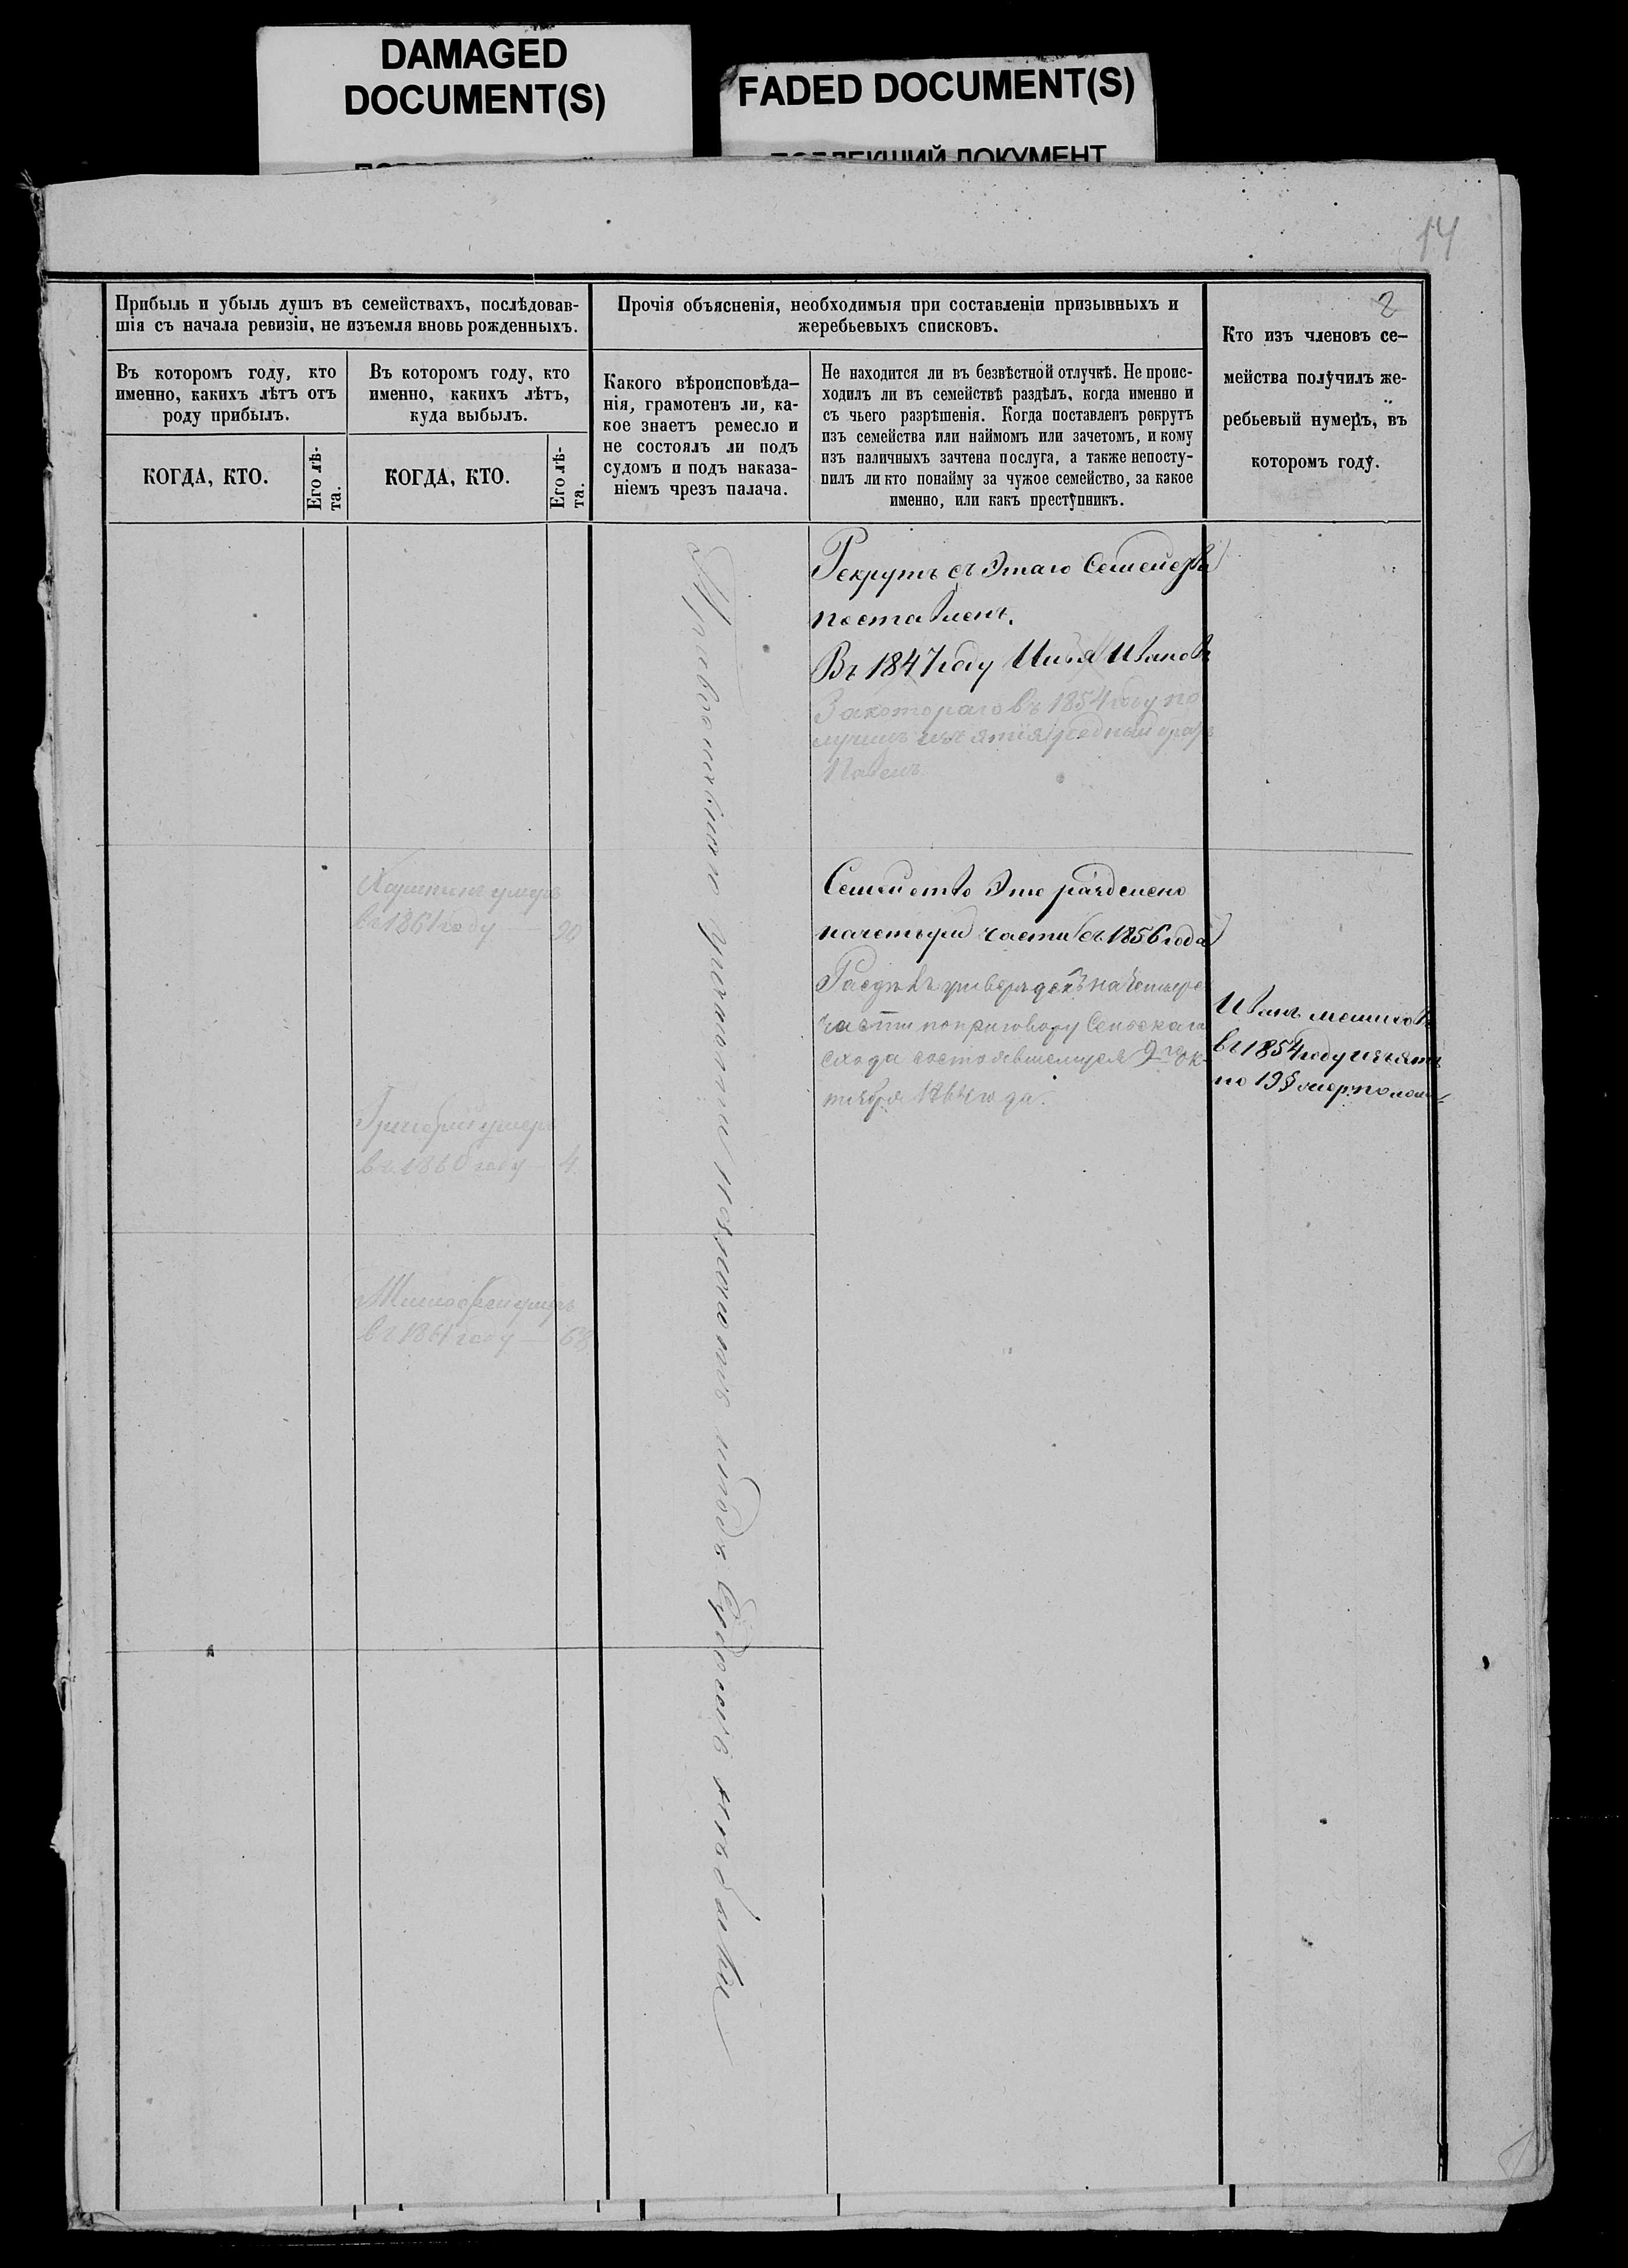 DAMAGED
DOCUMENT(S)
FADED DOCUMENT(S)
ПОБЛЕКШИЙ ДОКУМЕНТ
14
2
Прибыль и убыль душъ въ семействахъ, послѣдовав-
шія съ начала ревизіи, не изъемля вновь рожденныхъ.
Въ которомъ году, кто
именно, какихъ лѣтъ отъ
роду прибылъ.
КОГДА, КТО.
Его лѣ-
та.
Въ которомъ году, кто
именно, какихъ лѣтъ,
куда выбылъ.
КОГДА, КТО.
Его лѣ-
та.
Прочія объясненія, необходимыя при составленіи призывныхъ и
жеребьевыхъ списковъ.
Какого вѣроисповѣда-
нія, грамотенъ ли, ка-
кое знаетъ ремесло и
не состоялъ ли подъ
судомъ и подъ наказа-
ніемъ чрезъ палача.
Не находится ли въ безвѣстной отлучкѣ. Не проис-
ходилъ ли въ семействѣ раздѣлъ, когда именно и
съ чьего разрѣшенія. Когда поставленъ рекрутъ
изъ семейства или наймомъ или зачетомъ, и кому
изъ наличныхъ зачтена послуга, а также непосту-
пилъ ли кто понайму за чужое семейство, за какое
именно, или какъ преступникъ.
Кто изъ членовъ се-
мейства получилъ же-
ребьевый нумеръ, въ
которомъ году.
Рекрутъ съ этаго Семейства
поставленъ.
Въ 1847 году Илья Ивановъ
За котораго въ 1854 году по
лучилъ изъятія родный братъ
Павелъ
умеръ
въ 1861 году
Семейство Это раздѣлено
на четыри части съ 1856 года
Раздѣлъ утвержденъ на четыре
части по приговору Сельскаго
схода состоявшемуся 9го Ок-
тября 1864 года.
Григорій умеръ
въ 1860 году — 4.
умеръ
въ 1861 году — 68
Иванъ
въ 1854 году изъятъ
по 19 §
Православнаго грамоты незнаютъ подъ Судомъ небыли